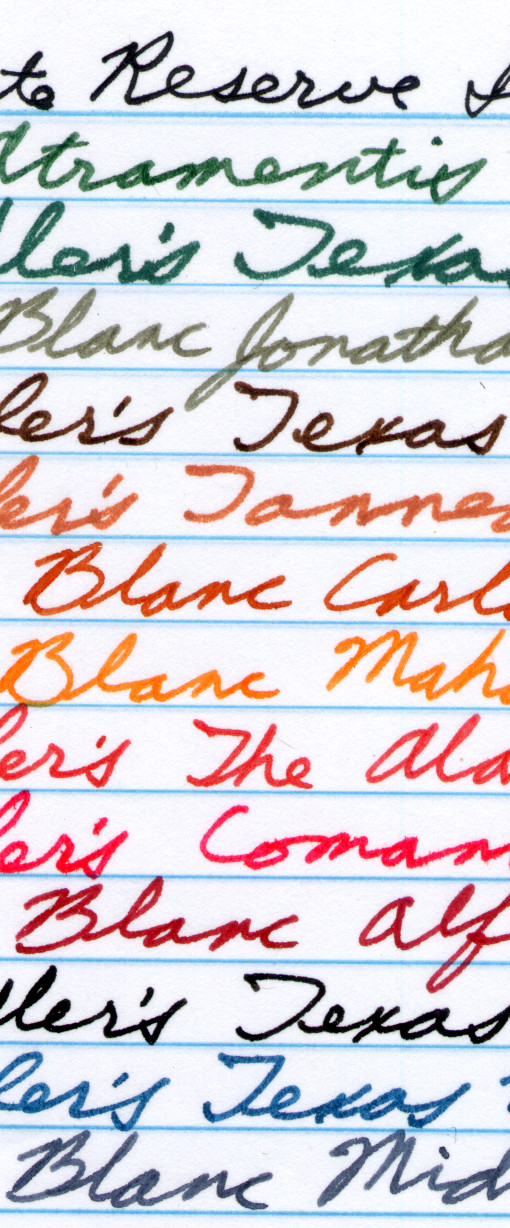 te Reserve
Atramentis
ler's Texa
Blanc Jonatha
ler's Texas
ler's Tanne
Blanc Carl
Blanc Maha
ler's The Ala
ler's Coman
Blanc Alf
ler's Texas
ler's Texas
Blanc Mid